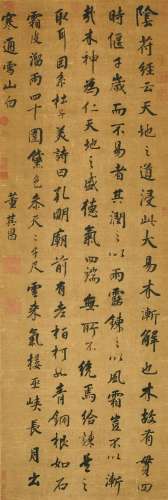 陰符經云天地之道浸此大易木漸解也木故有
時偃千歲而不易者其潤之以雨露鍊之以風霜豈不以漸
哉木神為仁天地之盛德氣四端無所不統焉給諫
取耳因系杜子美詩曰孔明廟前有老柏柯如青銅根如石
霜皮溜雨四十圍黛色參天二千尺雲來氣接巫峽長月出
寒通雪山白 董其昌